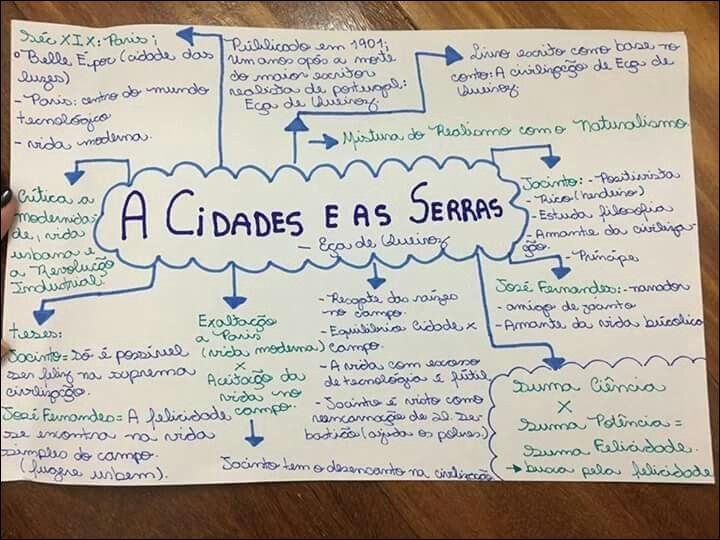 Séc XIX: Paris;
° Belle Époc (cidade das
luzes)
- Paris: centro do mundo
tecnológico
- vida moderna.
Publicado em 1901;
um anos após a morte
do maior escritor
realista de portugal:
Eça de Queiroz
Livro escrito como base no
conto: A civilização de Eça de
Queiroz
→ Mistura do Realismo com o Naturalismo
Crítica a
modernida-
de, vida
urbana e
a Revolução
Industrial.
A CIDADES E AS SERRAS
- Eça de Queiroz
Jacinto: - Positivista
- Rico (herdeiro)
- Estuda filosofia
- Amante da civiliza-
ção.
- Príncipe
José Fernandes: - narrador
- amigo de jacinto
- Amante da vida bucólica
teses:
Jacinto = Só é possível
ser feliz na suprema
civilização.
José Fernandes = A felicidade
se encontra na vida
simples do campo.
(fugere urbem).
Exaltação
a Paris
(vida moderna)
x
Aceitação da
vida no
campo.
Jacinto tem o desencanto na civilização
- Resgate das raízes
no campo.
- Equilíbrio Cidade x
campo.
- A vida com excesso
de tecnologia é fútil
- Jacinto é visto como
reencarnação de D. Se-
bastião (ajuda os pobres)
Suma Ciência
X
Suma Potência =
Suma Felicidade.
→ busca pela felicidade